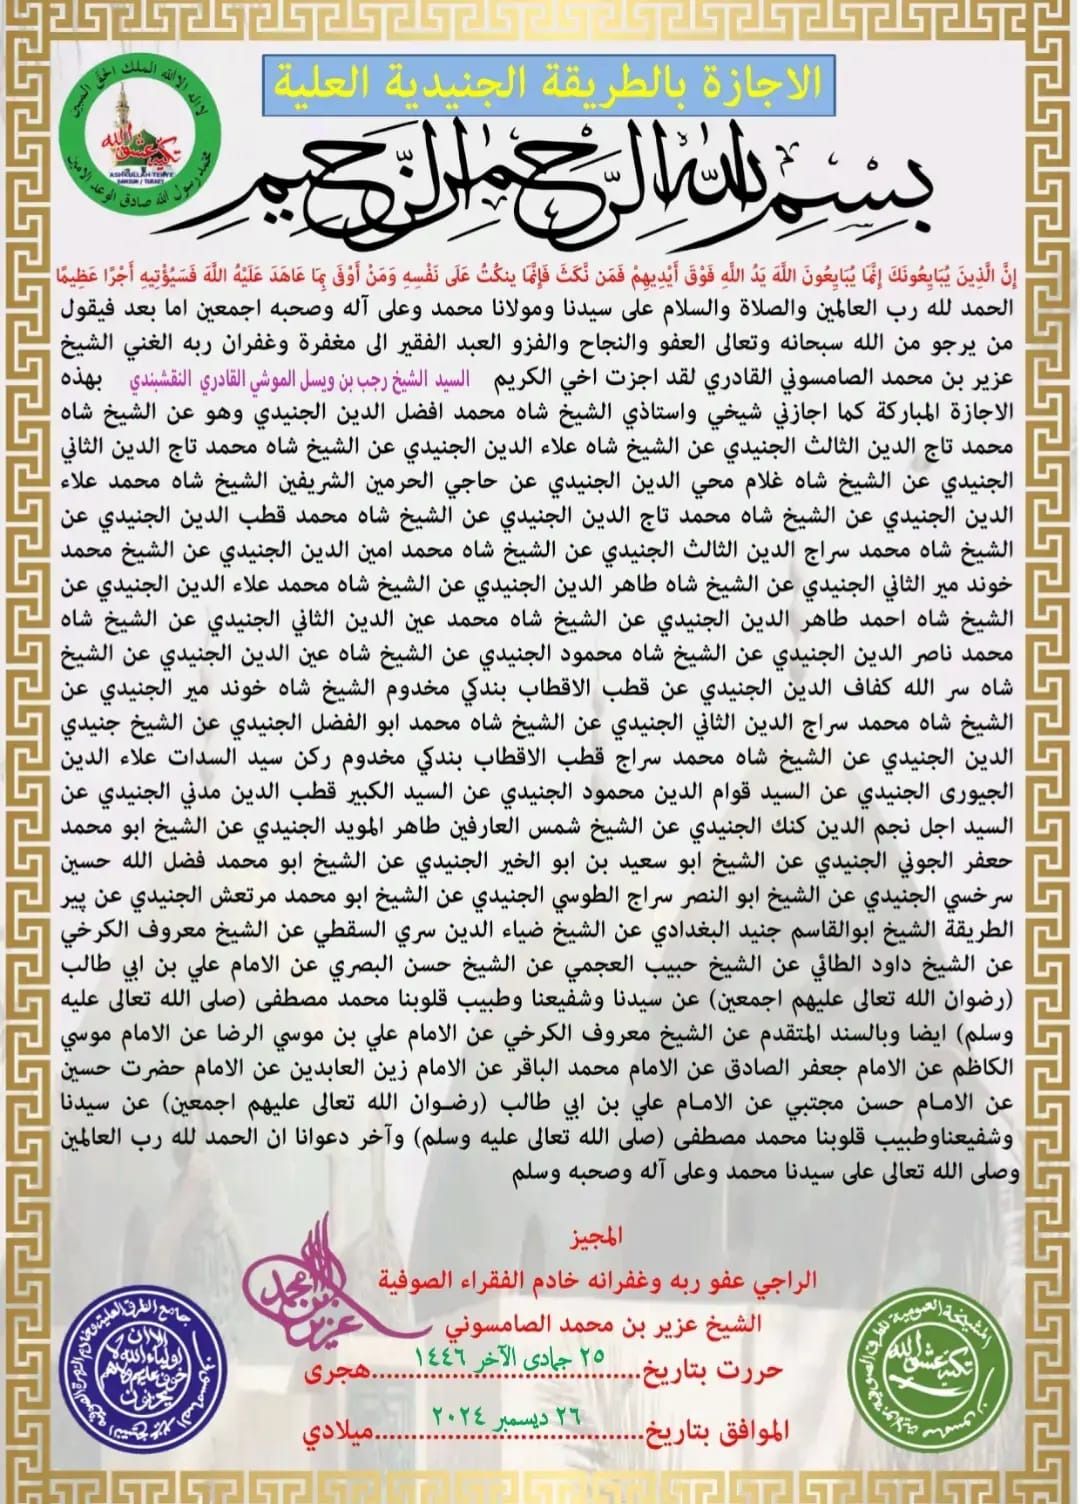 الاجازة بالطريقة الجنيدية العلية
لا اله الا الله الملك الحق المبين
محمد رسول الله صادق الوعد الامين
تكية عشق الله
ASHKULLAH TEKYE
SAMSUN / TURKEY
بسم الله الرحمن الرحيم
إِنَّ الَّذِينَ يُبَايِعُونَكَ إِنَّمَا يُبَايِعُونَ اللَّهَ يَدُ اللَّهِ فَوْقَ أَيْدِيهِمْ فَمَن نَّكَثَ فَإِنَّمَا ينكُثُ عَلَى نَفْسِهِ وَمَنْ أَوْفَى بِمَا عَاهَدَ عَلَيْهُ اللَّهَ فَسَيُؤْتِيهِ أَجْرًا عَظِيمًا
الحمد لله رب العالمين والصلاة والسلام على سيدنا ومولانا محمد وعلى آله وصحبه اجمعين اما بعد فيقول
من يرجو من الله سبحانه وتعالى العفو والنجاح والفزو العبد الفقير الى مغفرة وغفران ربه الغني الشيخ
عزير بن محمد الصامسوني القادري لقد اجزت اخي الكريم السيد الشيخ رجب بن ويسل الموشي القادري النقشبندي بهذه
الاجازة المباركة كما اجازني شيخي واستاذي الشيخ شاه محمد افضل الدين الجنيدي وهو عن الشيخ شاه
محمد تاج الدين الثالث الجنيدي عن الشيخ شاه علاء الدين الجنيدي عن الشيخ شاه محمد تاج الدين الثاني
الجنيدي عن الشيخ شاه غلام محي الدين الجنيدي عن حاجي الحرمين الشريفين الشيخ شاه محمد علاء
الدين الجنيدي عن الشيخ شاه محمد تاج الدين الجنيدي عن الشيخ شاه محمد قطب الدين الجنيدي عن
الشيخ شاه محمد سراج الدين الثالث الجنيدي عن الشيخ شاه محمد امين الدين الجنيدي عن الشيخ محمد
خوند مير الثاني الجنيدي عن الشيخ شاه طاهر الدين الجنيدي عن الشيخ شاه محمد علاء الدين الجنيدي عن
الشيخ شاه احمد طاهر الدين الجنيدي عن الشيخ شاه محمد عين الدين الثاني الجنيدي عن الشيخ شاه
محمد ناصر الدين الجنيدي عن الشيخ شاه محمود الجنيدي عن الشيخ شاه عين الدين الجنيدي عن الشيخ
شاه سر الله كفاف الدين الجنيدي عن قطب الاقطاب بندكي مخدوم الشيخ شاه خوند مير الجنيدي عن
الشيخ شاه محمد سراج الدين الثاني الجنيدي عن الشيخ شاه محمد ابو الفضل الجنيدي عن الشيخ جنيدي
الدين الجنيدي عن الشيخ شاه محمد سراج قطب الاقطاب بندكي مخدوم ركن سيد السدات علاء الدين
الجيورى الجنيدي عن السيد قوام الدين محمود الجنيدي عن السيد الكبير قطب الدين مدني الجنيدي عن
السيد اجل نجم الدين كنك الجنيدي عن الشيخ شمس العارفين طاهر المويد الجنيدي عن الشيخ ابو محمد
حعفر الجوني الجنيدي عن الشيخ ابو سعيد بن ابو الخير الجنيدي عن الشيخ ابو محمد فضل الله حسين
سرخسي الجنيدي عن الشيخ ابو النصر سراج الطوسي الجنيدي عن الشيخ ابو محمد مرتعش الجنيدي عن پير
الطريقة الشيخ ابوالقاسم جنيد البغدادي عن الشيخ ضياء الدين سري السقطي عن الشيخ معروف الكرخي
عن الشيخ داود الطائي عن الشيخ حبيب العجمي عن الشيخ حسن البصري عن الامام علي بن ابي طالب
(رضوان الله تعالى عليهم اجمعين) عن سيدنا وشفيعنا وطبيب قلوبنا محمد مصطفى (صلى الله تعالى عليه
وسلم) ايضا وبالسند المتقدم عن الشيخ معروف الكرخي عن الامام علي بن موسي الرضا عن الامام موسي
الكاظم عن الامام جعفر الصادق عن الامام محمد الباقر عن الامام زين العابدين عن الامام حضرت حسين
عن الامـام حسن مجتبي عن الامـام علي بن ابي طالب (رضـوان الله تعالى عليهم اجمعين) عن سيدنا
وشفيعناوطبيب قلوبنا محمد مصطفى (صلى الله تعالى عليه وسلم) وآخر دعوانا ان الحمد لله رب العالمين
وصلى الله تعالى على سيدنا محمد وعلى آله وصحبه وسلم
المجيز
الراجي عفو ربه وغفرانه خادم الفقراء الصوفية
الشيخ عزير بن محمد الصامسوني
عزير بن محمد
حررت بتاريخ ٢٥ جمادى الآخر ١٤٤٦ هجرى
الموافق بتاريخ ٢٦ ديسمبر ٢٠٢٤ ميلادي
الا ان اولياء الله لا خوف عليهم ولا هم يحزنون
تكية عشق الله